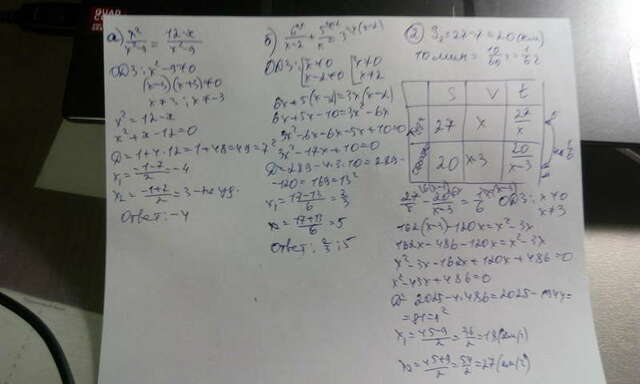 а) x²/x²-9 = 12-x/x²-9
ОДЗ: x²-9≠0
(x-3)(x+3)≠0
x≠3; x≠-3
x²=12-x
x²+x-12=0
D=1+4·12=1+48=49=7²
x₁=-1-7/2=-4
x₂=-1+7/2=3-не уд.
Ответ: -4
б) 6/x-2 + 5/x = 3
ОДЗ: x≠0 x≠0
x-2≠0 x≠2
6x+5(x-2)=3x(x-2)
6x+5x-10=3x²-6x
3x²-6x-6x-5x+10=0
3x²-17x+10=0
D=289-4·3·10=289-
-120=169=13²
x₁=17-13/6=2/3
x₂=17+13/6=5
Ответ: 2/3; 5
② S₂=27-7=20(км)
10мин=10/60 ч=1/6 ч
S V t
27 x 27/x
20 x-3 20/x-3
27/x - 20/x-3 = 1/6 ОДЗ: x≠0
x≠3
162(x-3)-120x=x²-3x
162x-486-120x=x²-3x
x²-3x-162x+120x+486=0
x²-45x+486=0
D=2025-4·486=2025-1944=
=81=9²
x₁=45-9/2=36/2=18(км/ч)
x₂=45+9/2=54/2=27(км/ч)